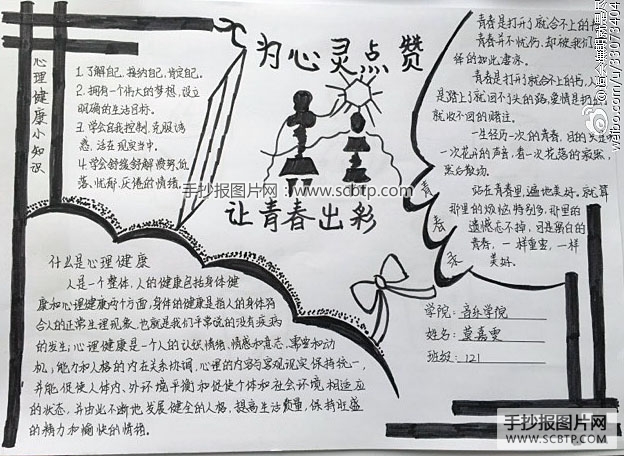 为心灵点赞
让青春出彩
心理健康小知识
1.了解自己、接纳自己、肯定自己。
2.拥有一个伟大的梦想,设立
明确的生活目标。
3.学会自我控制,克服诱
惑,活在现实当中。
4.学会舒缓纾解愤努、低
落、忧郁、厌倦的情绪。
什么是心理健康
人是一个整体,人的健康包括身体健
康和心理健康两个方面,身体的健康是指人的身体符
合人的正常生理现象,也就是我们平常说的没有疾病
的发生;心理健康是一个人的认识情绪、情感和意志、需要和动
机;能力和人格的内在关系协调,心理的内容与客观现实保持统一,
并能促使人体内、外环境平衡和促使个体和社会环境相适应
的状态,并由此不断地发展健全的人格,提高生活质量,保持旺盛
的精力和愉快的情绪。
青春是打开了就合不上的
青春并不忧伤,却被我们
体的如此凄凉。
青春是打开了就合不上的书,人
是踏上了就回不了头的路,爱情是扔
就收不回的赌注。
一生经历一次的青春,目的只是
一次花开的声音,看一次花落的寂然,
然后散场。
站在青春里,遍地美好。就算
那里的烦恼特别多,那里的
遗憾忘不掉,可是留白的
青春,一样重要,一样
美好。
青春
学院:音乐学院
姓名:莫嘉雯
班级:121
手抄报图片网:www.scbtp.com
手抄报图片网
WWW.SCBTP.COM
weibo.com/u/33073404